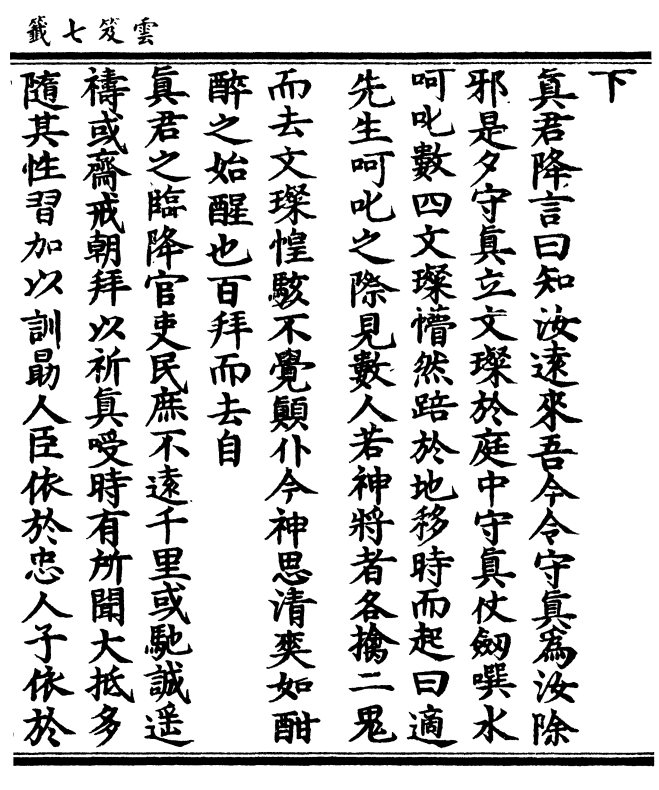 雲笈七籤
下
真君降言曰知汝遠來吾今令守真為汝除
邪是夕守真立文璨於庭中守真仗劔噀水
呵叱數四文璨懵然踣於地移時而起曰適
先生呵叱之際見數人若神將者各擒二鬼
而去文璨惶駭不覺顛仆今神思清爽如酣
醉之始醒也百拜而去自
真君之臨降官吏民庶不遠千里或馳誠遥
禱或齋戒朝拜以祈真受時有所聞大抵多
隨其性習加以訓勗人臣依於忠人子依於